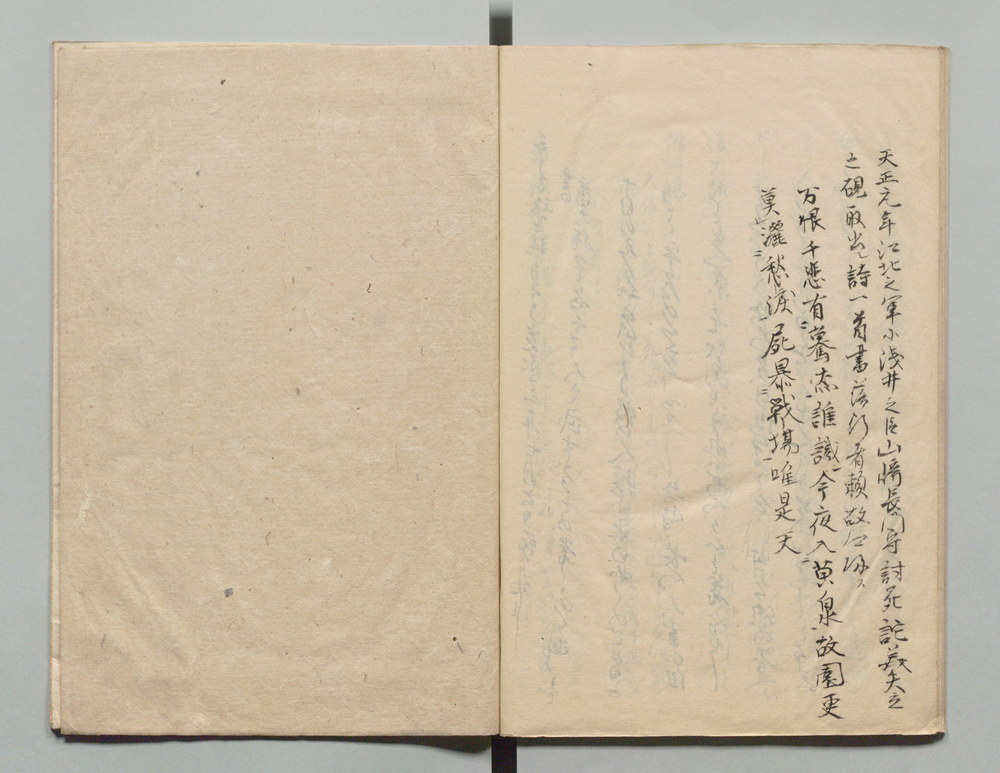 天正元年江北之軍小浅井之臣山﨑長門守討死詫義矢立
之硯取出詩一首書落行者頼故郷
万恨千悲有驀然誰識今夜入黄泉故園更
莫灑愁涙屍暴戦場唯是天